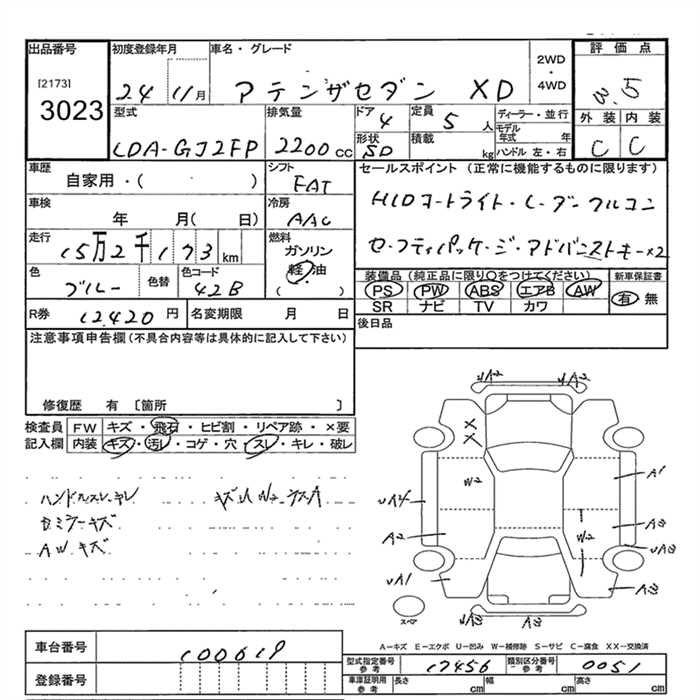 出品番号
[2173]
3023
初度登録年月
24 11月
車名・グレード
アテンザセダン XD
2WD
・
4WD
評価点
3.5
型式
LDA-GJ2FP
排気量
2200cc
ドア
4
定員
5人
ディーラー・並行
モデル年式 年
形状
SD
積載
kg
ハンドル 左・右
外装 内装
C C
車歴
自家用・( )
シフト
FAT
セールスポイント (正常に機能するものに限ります)
HIDオートライト・レーダークルコン
セーフティパッケージ・アドバンストキー×2
車検
年 月( 日)
冷房
AAC
走行
15万2千173km
燃料
ガソリン
軽・油
( ・ )
色
ブルー
色替
色コード
42B
装備品(純正品に限り○をつけてください) 新車保証書
PS PW ABS エアB AW
SR ナビ TV カワ
有 無
R券
12420円
名変期限 月 日
後日品
注意事項申告欄(不具合内容等は具体的に記入して下さい)
修復歴 有 〔箇所 〕
検査員記入欄
FW キズ・飛石・ヒビ割・リペア跡・×要
内装 キズ・汚レ・コゲ・穴・スレ・キレ・破レ
ハンドルスレキレ
AWキズ
UA2 UA2
XX
W2
A1
UA4
A2
A3
W2
UA3
UA1
A3
A3
スペア
A-キズ E-エクボ U-凹み W-補修跡 S-サビ C-腐食 XX-交換済
車台番号
100619
登録番号
型式指定番号 参考
17456
類別区分番号 参考
0051
車庫証明用 参考
長さ cm 幅 cm 高さ cm